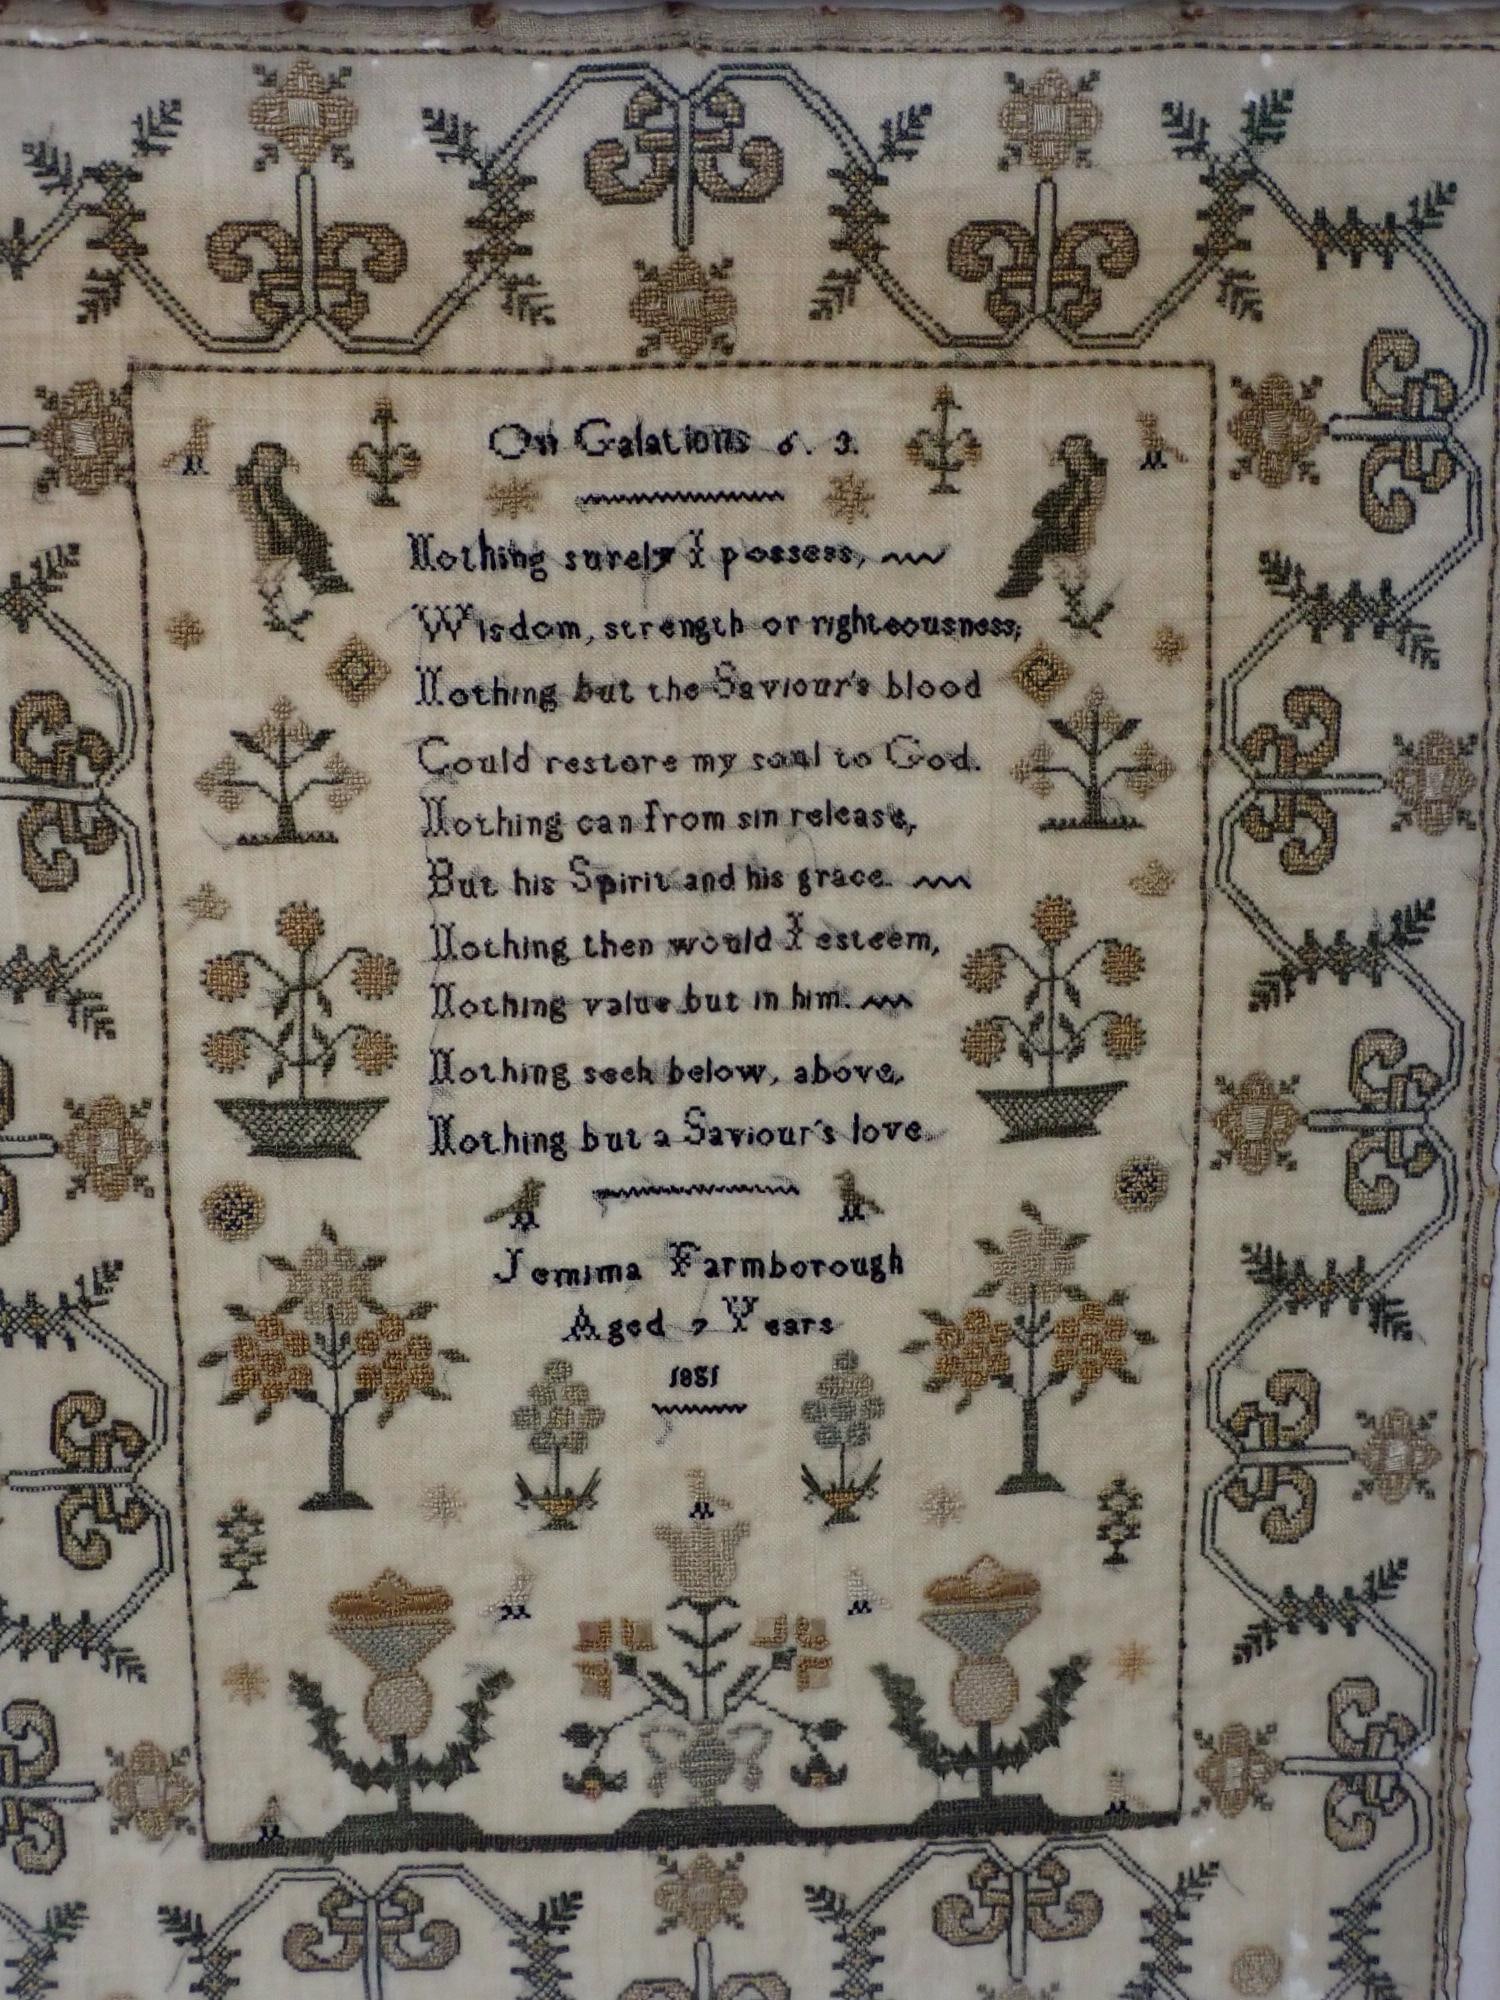 On Galations 6. 3.
Nothing surely I possess,
Wisdom, strength or righteousness;
Nothing but the Saviour's blood
Could restore my soul to God.
Nothing can from sin release,
But his Spirit and his grace.
Nothing then would I esteem,
Nothing value but in him.
Nothing seek below, above,
Nothing but a Saviour's love.
Jemima Farmborough
Aged 7 Years
1831